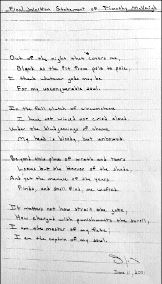 Final Written Statement of Timothy McVeigh
Out of the night that covers me,
Black as the Pit from pole to pole,
I thank whatever gods may be
For my unconquerable soul.
In the fell clutch of circumstance
I have not winced nor cried aloud.
Under the bludgeonings of chance
My head is bloody, but unbowed.
Beyond this place of wrath and tears
Looms but the horror of the shade,
And yet the menace of the years
Finds, and shall find, me unafraid.
It matters not how strait the gate,
How charged with punishments the scroll,
I am the master of my fate;
I am the captain of my soul.
June 11, 2001